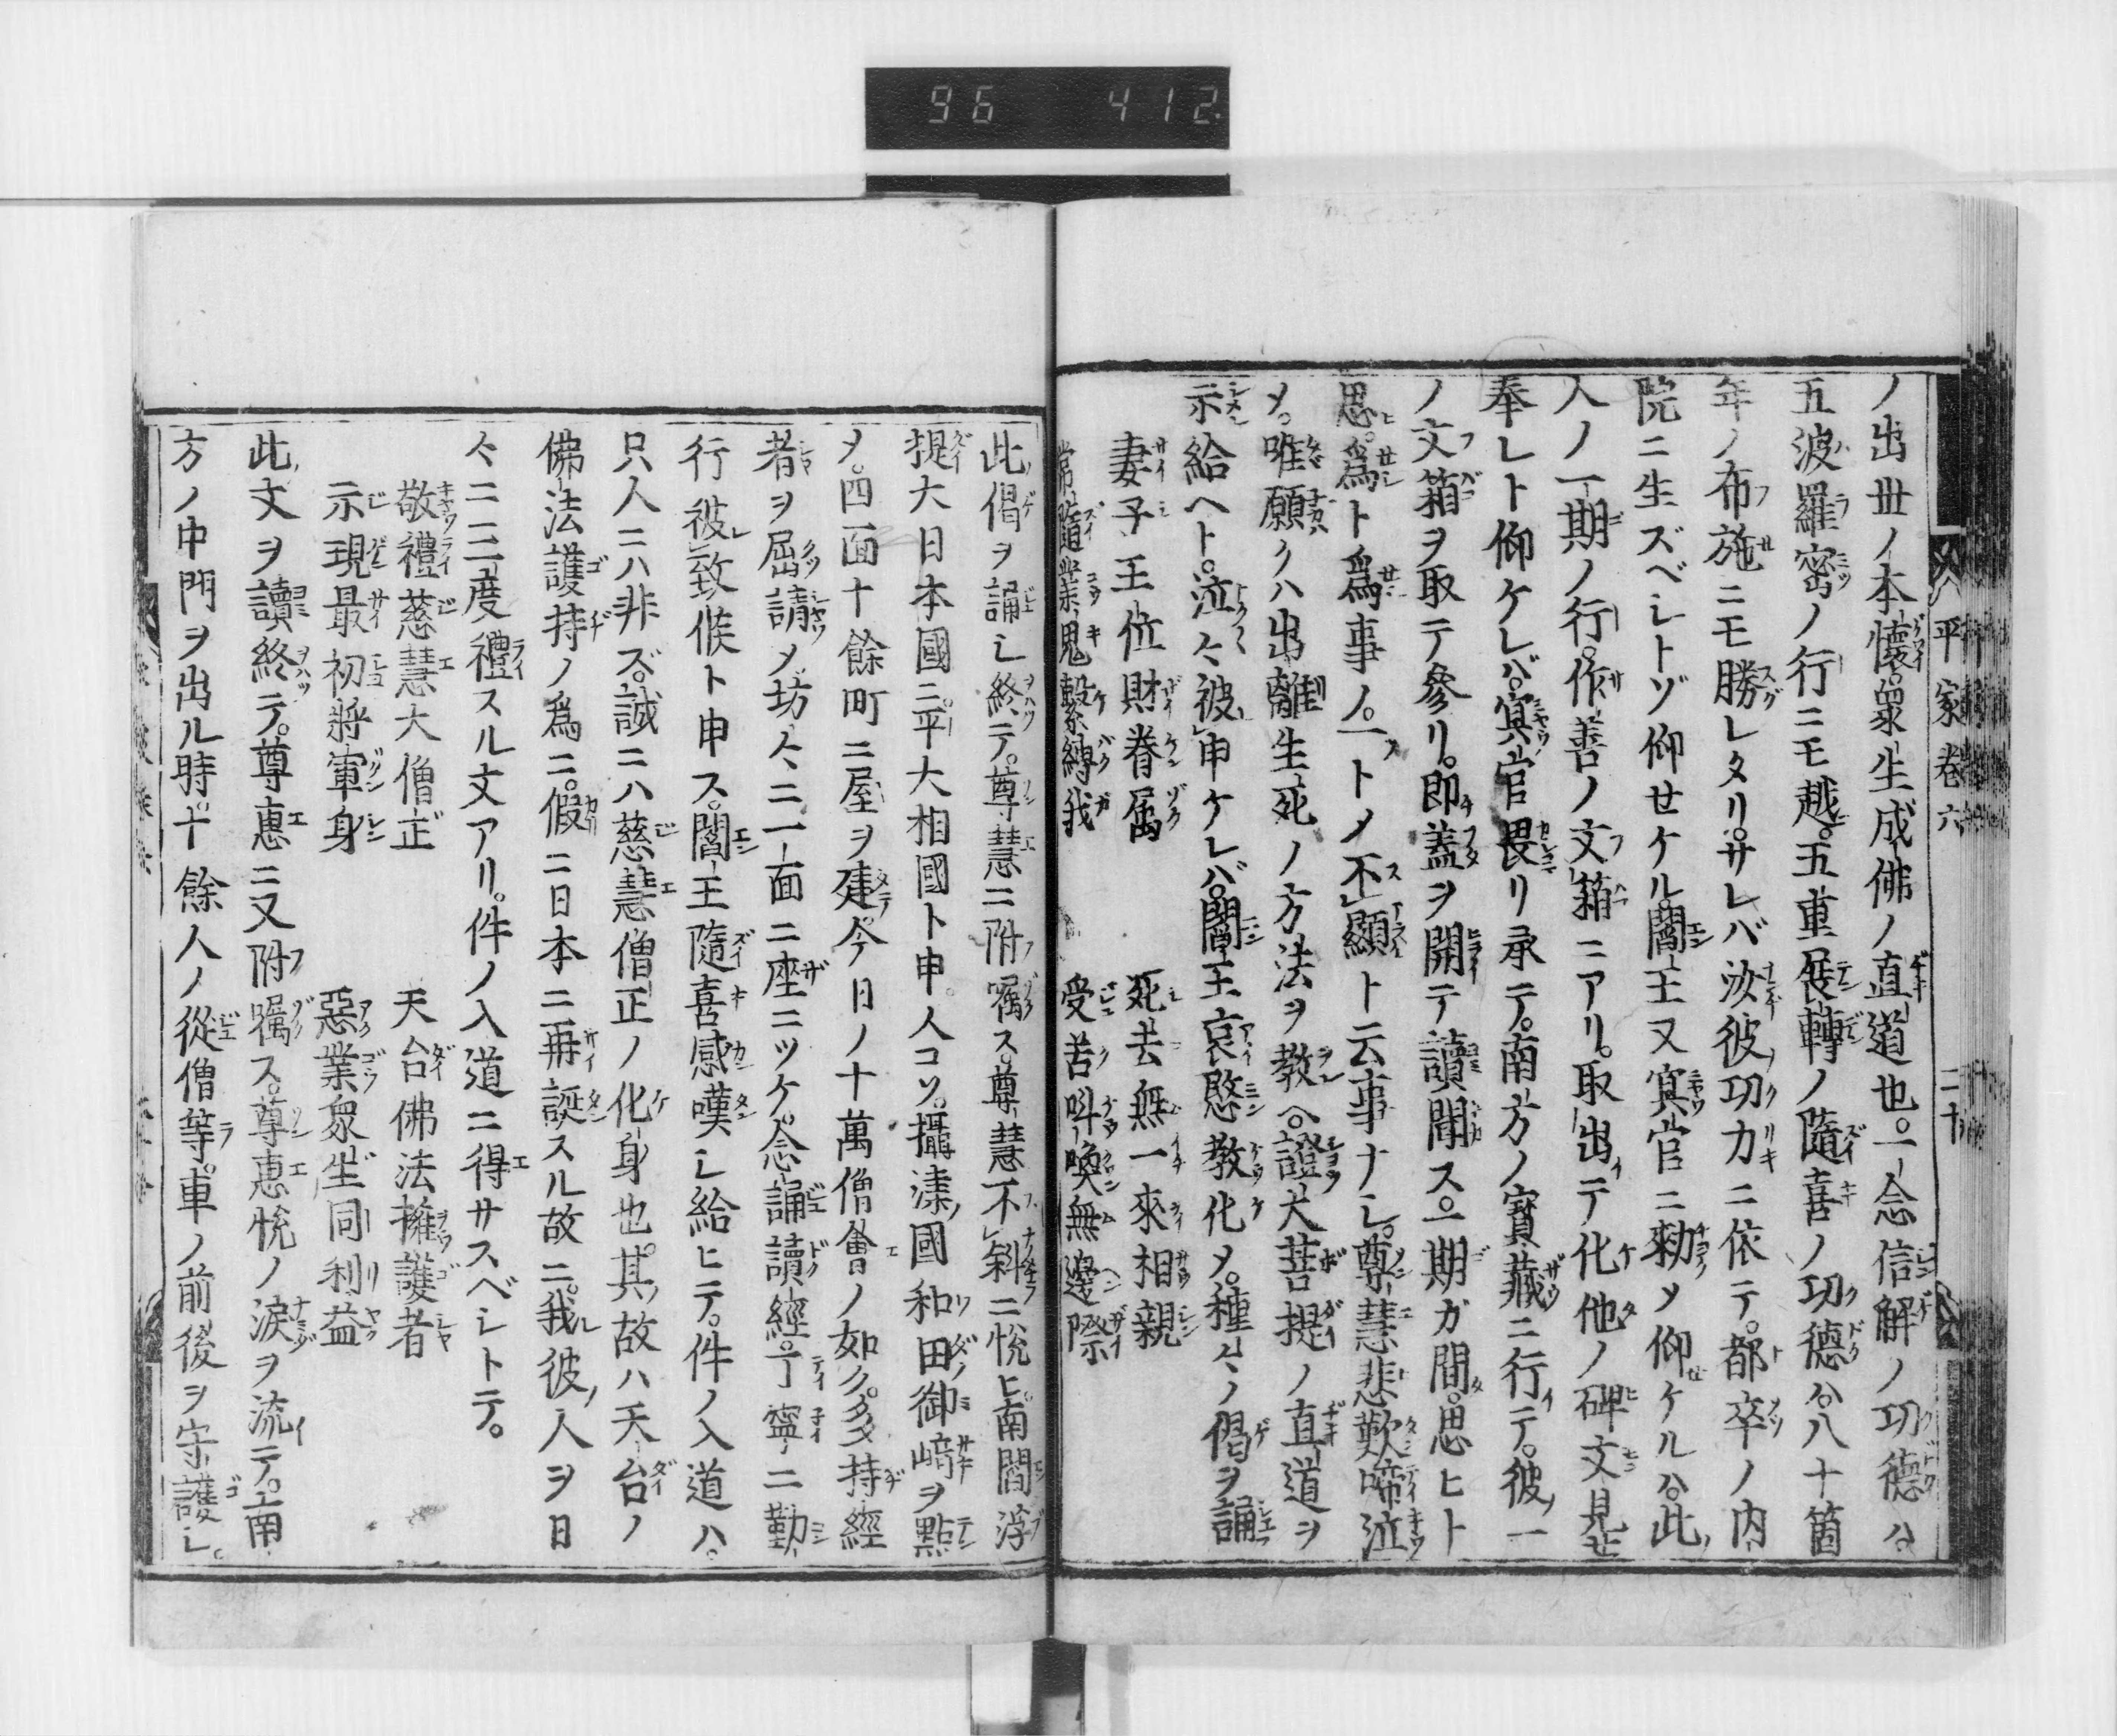 96 412
平家卷六
二十
ノ出世ノ本懷。衆生成佛ノ直道也。一念信解ノ功德ハ。
五波羅密ノ行ニモ越。五重展轉ノ隨喜ノ功德ハ。八十箇
年ノ布施ニモ勝レタリ。サレバ汝彼功力ニ依テ。都卒ノ内
院ニ生ズベシトゾ仰せケル。閻王又冥官ニ勅メ仰ケルハ。此
人ノ一期ノ行。作善ノ文箱ニアリ。取出テ化他ノ碑文見せ
奉レト仰ケレバ。冥官畏リ承テ。南方ノ寳藏ニ行テ。彼一
ノ文箱ヲ取テ參リ。即蓋ヲ開テ讀聞ス。一期ガ間。思ヒト
思。爲ト爲事ノ。一トメ不顯ト云事ナシ。尊慧悲歎啼泣
メ。唯願クハ出離生死ノ方法ヲ教ヘ。證大菩提ノ直道ヲ
示給ヘト。泣々彼申ケレバ。閻王哀愍教化メ。種々ノ偈ヲ誦
妻子王位財眷属　死去無一來相親
常隨業鬼繫縛我　受苦叫喚無邊際
此偈ヲ誦シ終テ。尊慧ニ附囑ス。尊慧不斜ニ悦ヒ。南閻浮
提大日本國ニ。平大相國ト申。人コソ。攝津國和田御﨑ヲ點
メ。四面十餘町ニ屋ヲ建。今日ノ十萬僧會ノ如ク。多持經
者ヲ屈請メ。坊々ニ一面ニ座ニツケ。念誦讀經。丁寧ニ勤
行彼致候ト申ス。閻王隨喜感嘆シ給ヒテ。件ノ入道ハ。
只人ニハ非ズ。誠ニハ慈慧僧正ノ化身也。其故ハ天台ノ
佛法護持ノ爲ニ。假ニ日本ニ再誕スル故ニ。我彼人ヲ日
々ニ三度禮スル文アリ。件ノ入道ニ得サスベシトテ。
敬禮慈慧大僧正　天台佛法擁護者
示現最初將軍身　惡業衆生同利益
此文ヲ讀終テ。尊惠ニ又附囑ス。尊惠悦ノ涙ヲ流テ。南
方ノ中門ヲ出ル時。十餘人ノ從僧等。車ノ前後ヲ守護シ。